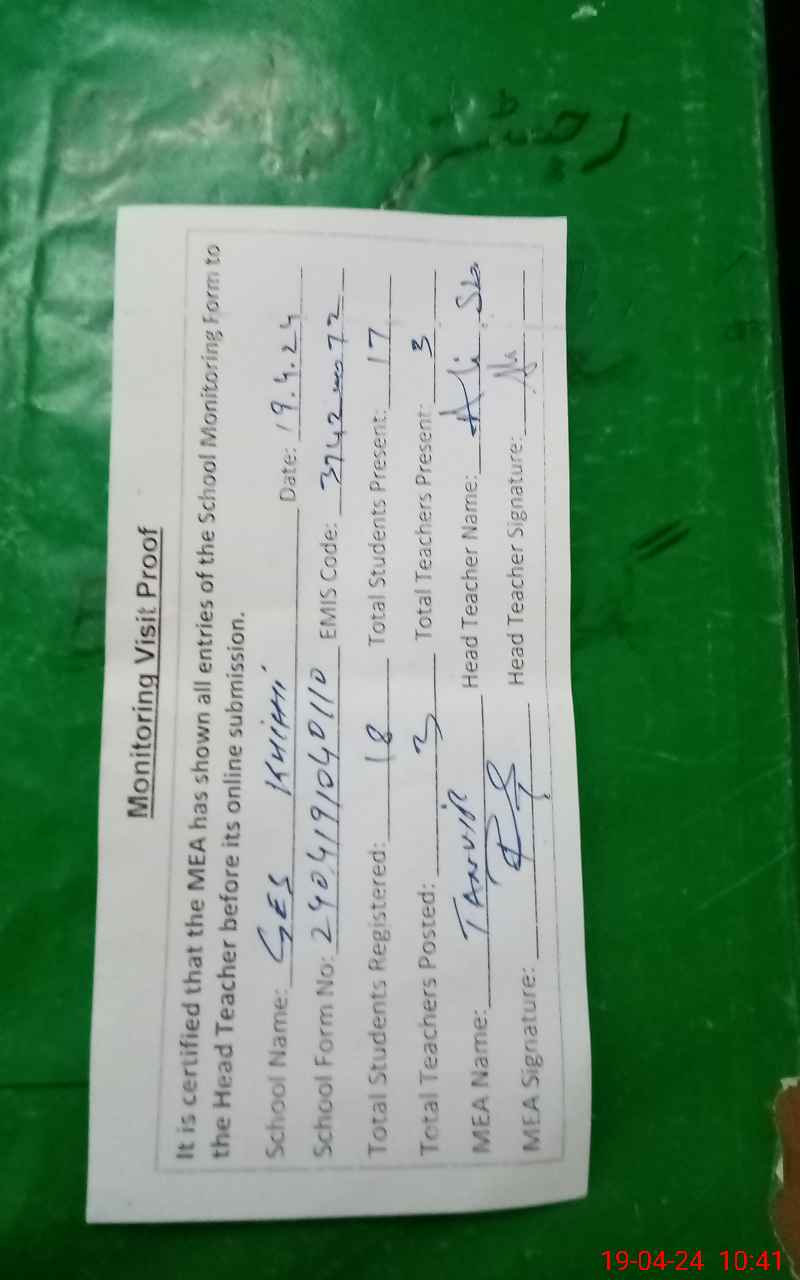 رجسٹر
Monitoring Visit Proof
It is certified that the MEA has shown all entries of the School Monitoring Form to
the Head Teacher before its online submission.
School Name: GES KHIAHI Date: 19.4.24
School Form No: 2404191040110 EMIS Code: 37420072
Total Students Registered: 18 Total Students Present: 17
Total Teachers Posted: 3 Total Teachers Present: 3
MEA Name: TANVIR Head Teacher Name: Ali
MEA Signature: Head Teacher Signature:
19-04-24 10:41